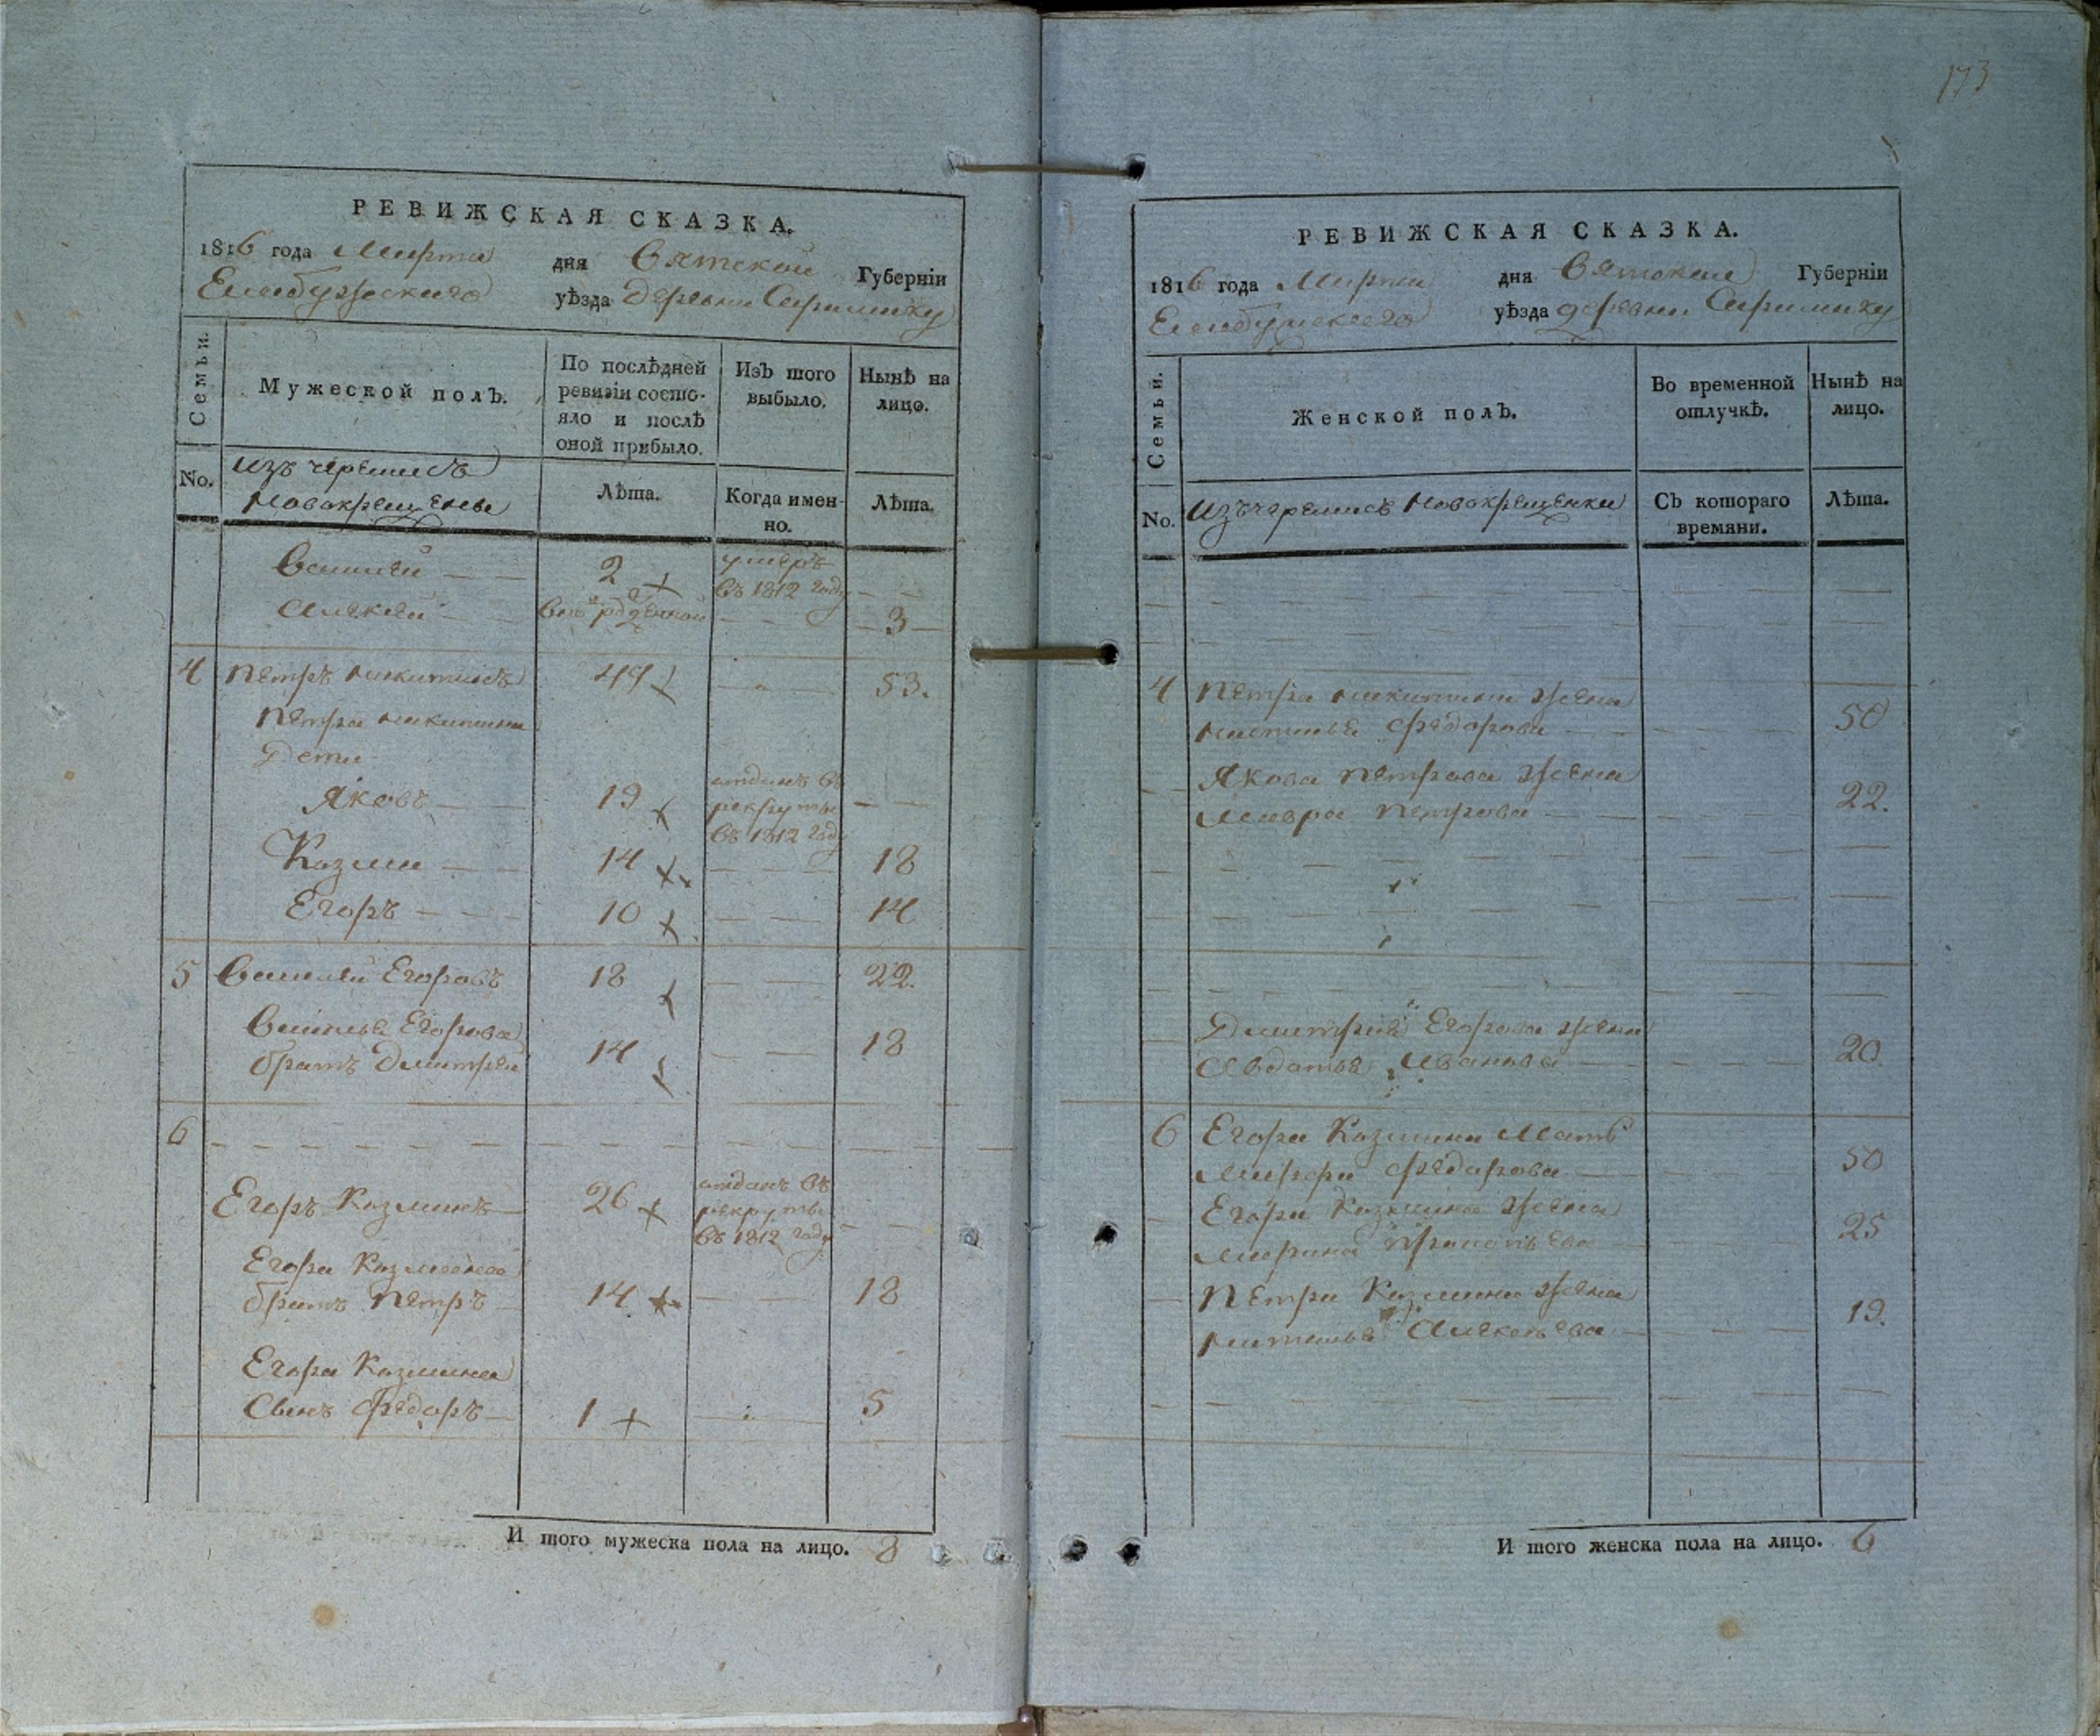 173
РЕВИЖСКАЯ СКАЗКА.
1816 года Марта дня Вятской Губерніи
Елабужскаго уѣзда деревни
Семьи.
Мужеской полъ.
По послѣдней ревизіи состо-
яло и послѣ
оной прибыло.
Изъ того
выбыло.
Нынѣ на
лицо.
No.
изъ черемисъ
новокрещены
Лѣта.
Когда имен-
но.
Лѣта.
Василей 2 умеръ
въ 1812 году
Алексей 3
4 Петръ Никитинъ 49 53.
Петра Никитина
Дети
Яковъ 19 отданъ въ
рекруты
въ 1812 году
Козма 14 18
Егоръ 10 14
5 Василей Егоровъ 18 22.
Василья Егорова
братъ Дмитрей 14 18
6
Егоръ Козминъ 26 отданъ въ
рекруты
въ 1812 году
Егора Козмина
братъ Петръ 14 18
Егора Козмина
Сынъ Федоръ 1 5
И того мужеска пола на лицо. 8
РЕВИЖСКАЯ СКАЗКА.
1816 года Марта дня Вятской Губерніи
Елабужскаго уѣзда деревни
Семьи.
Женской полъ.
Во временной
отлучкѣ.
Нынѣ на
лицо.
No.
изъ черемисъ новокрещенки
Съ котораго
времяни.
Лѣта.
4 Петра Никитина жена
Настасья Федорова 50
Якова Петрова жена
Мавра Петрова 22.
Дмитрия Егорова жена
Авдотья Иванова 20.
6 Егора Козмина Мать
Марфа Федорова 50
Егора Козмина жена
Марина Прокопьева 25
Петра Козмина жена
Наталья Алексеева 19.
И того женска пола на лицо. 6